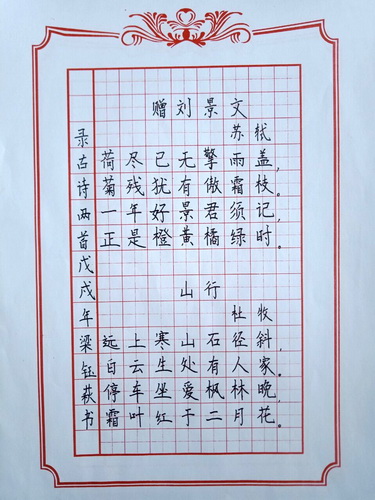 赠刘景文
苏轼
荷尽已无擎雨盖，
菊残犹有傲霜枝。
一年好景君须记，
正是橙黄橘绿时。
山行
杜牧
远上寒山石径斜，
白云生处有人家。
停车坐爱枫林晚，
霜叶红于二月花。
录古诗两首戊戌年梁钰萩书